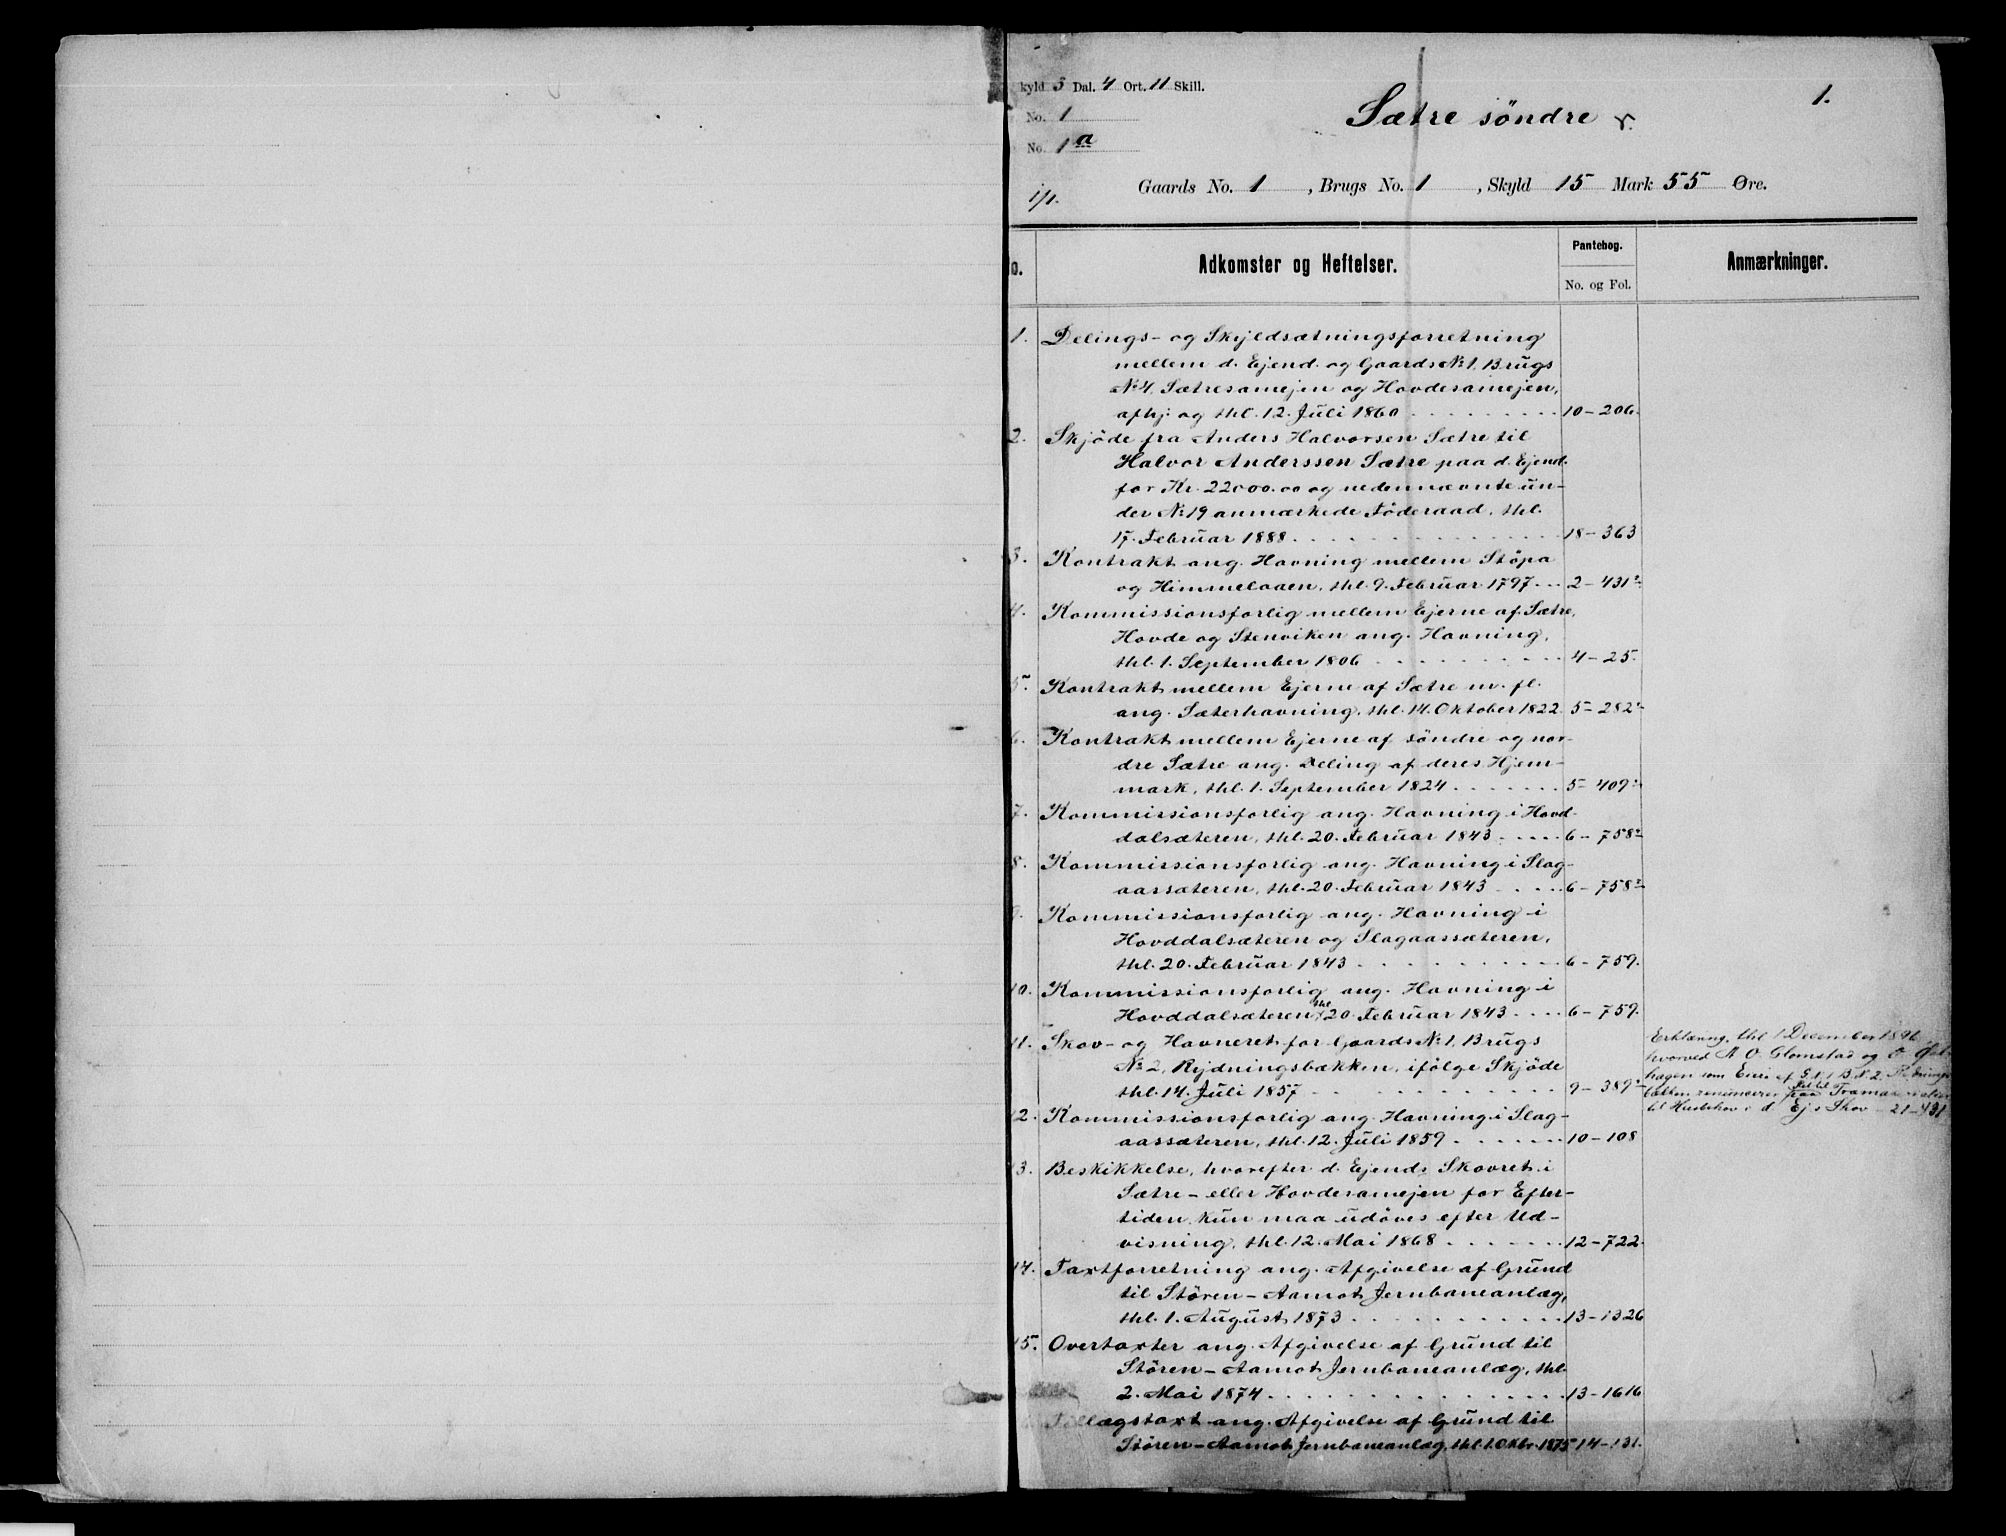 kyld 3 Dal. 4 Ort. 11 Skill.
No. 1
No. 1 a
1/1.
Sætre söndre
1.
Gaards No. 1, Brugs No. 1, Skyld 15 Mark 55 Øre.
o. Adkomster og Heftelser. Pantebog. No. og Fol. Anmærkninger.
1. Delings- og Skyldsætningsforretning
mellem d. Ejend. og Gaards № 1, Brugs
№ 4, Sætresamejen og Hovdesamejen,
afhj: og thl. 12. Juli 1860 . . . . . . . . . 10-206.
2. Skjöde fra Anders Halvorsen Sætre til
Halvor Anderssen Sætre paa d. Ejend.
for Kr. 22000.00 og nedennævnte un-
der № 19 anmærkede Föderaad, thl.
17. Februar 1888 . . . . . . . . . . . . . . 18-363
3. Kontrakt ang. Havning mellem Stöpa
og Himmelaaen, thl. 9. Februar 1797 . . . 2-431ᵇ
4. Kommissionsforlig mellem Ejerne af Sætre,
Hovde og Stenviken ang. Havning,
thl. 1. September 1806 . . . . . . . . . . 4-25.
5. Kontrakt mellem Ejerne af Sætre m. fl.
ang. Sæterhavning, thl. 14. Oktober 1822. 5-282ᵇ
6. Kontrakt mellem Ejerne af söndre og nor-
dre Sætre ang. Deling af deres Hjem-
mark, thl. 1. September 1824 . . . . . . . 5-409ᵇ
7. Kommissionsforlig ang. Havning i Hovd-
dalsæteren, thl. 20. Februar 1843 . . . . . 6-758ᵇ
8. Kommissionsforlig ang. Havning i Slag-
aassæteren, thl. 20. Februar 1843 . . . . 6-758ᵇ
9. Kommissionsforlig ang. Havning i
Hovddalsæteren og Slagaassæteren,
thl. 20. Februar 1843 . . . . . . . . . . 6-759.
10. Kommissionsforlig ang. Havning i
Hovddalsæteren thl. 20. Februar 1843 . . . . 6-759.
11. Skov- og Havneret for Gaards № 1, Brugs
№ 2, Rydningsbækken, ifölge Skjöde
thl. 14. Juli 1857 . . . . . . . . . . . . 9-389ᵇ
Erklæring, thl 1 December 1896,
hvorved A. O. Glomstad og O.
hagen som Eiere af G. N. 1 B. N. 2
bækken renuncerer paa Ret til
til Husbehov i d. Ej.s Skov - 21-431
12. Kommissionsforlig ang. Havning i Slag-
aassæteren, thl. 12. Juli 1859 . . . . . . . 10-108
13. Beskikkelse, hvorefter d. Ejends Skovret i
Sætre- eller Hovdesamejen for Efter-
tiden kun maa udöves efter Ud-
visning, thl. 12. Mai 1868 . . . . . . . 12-722.
14. Taxtforretning ang. Afgivelse af Grund
til Stören-Aamot Jernbaneanlæg,
thl. 1. August 1873 . . . . . . . . . . . 13-1326
15. Overtaxter ang. Afgivelse af Grund til
Stören-Aamot Jernbaneanlæg, thl.
2. Mai 1874 . . . . . . . . . . . . . . . 13-1616
Tillægstaxt ang. Afgivelse af Grund til
Stören-Aamot Jernbaneanlæg, thl. 1. Oktr. 1875 14-131.